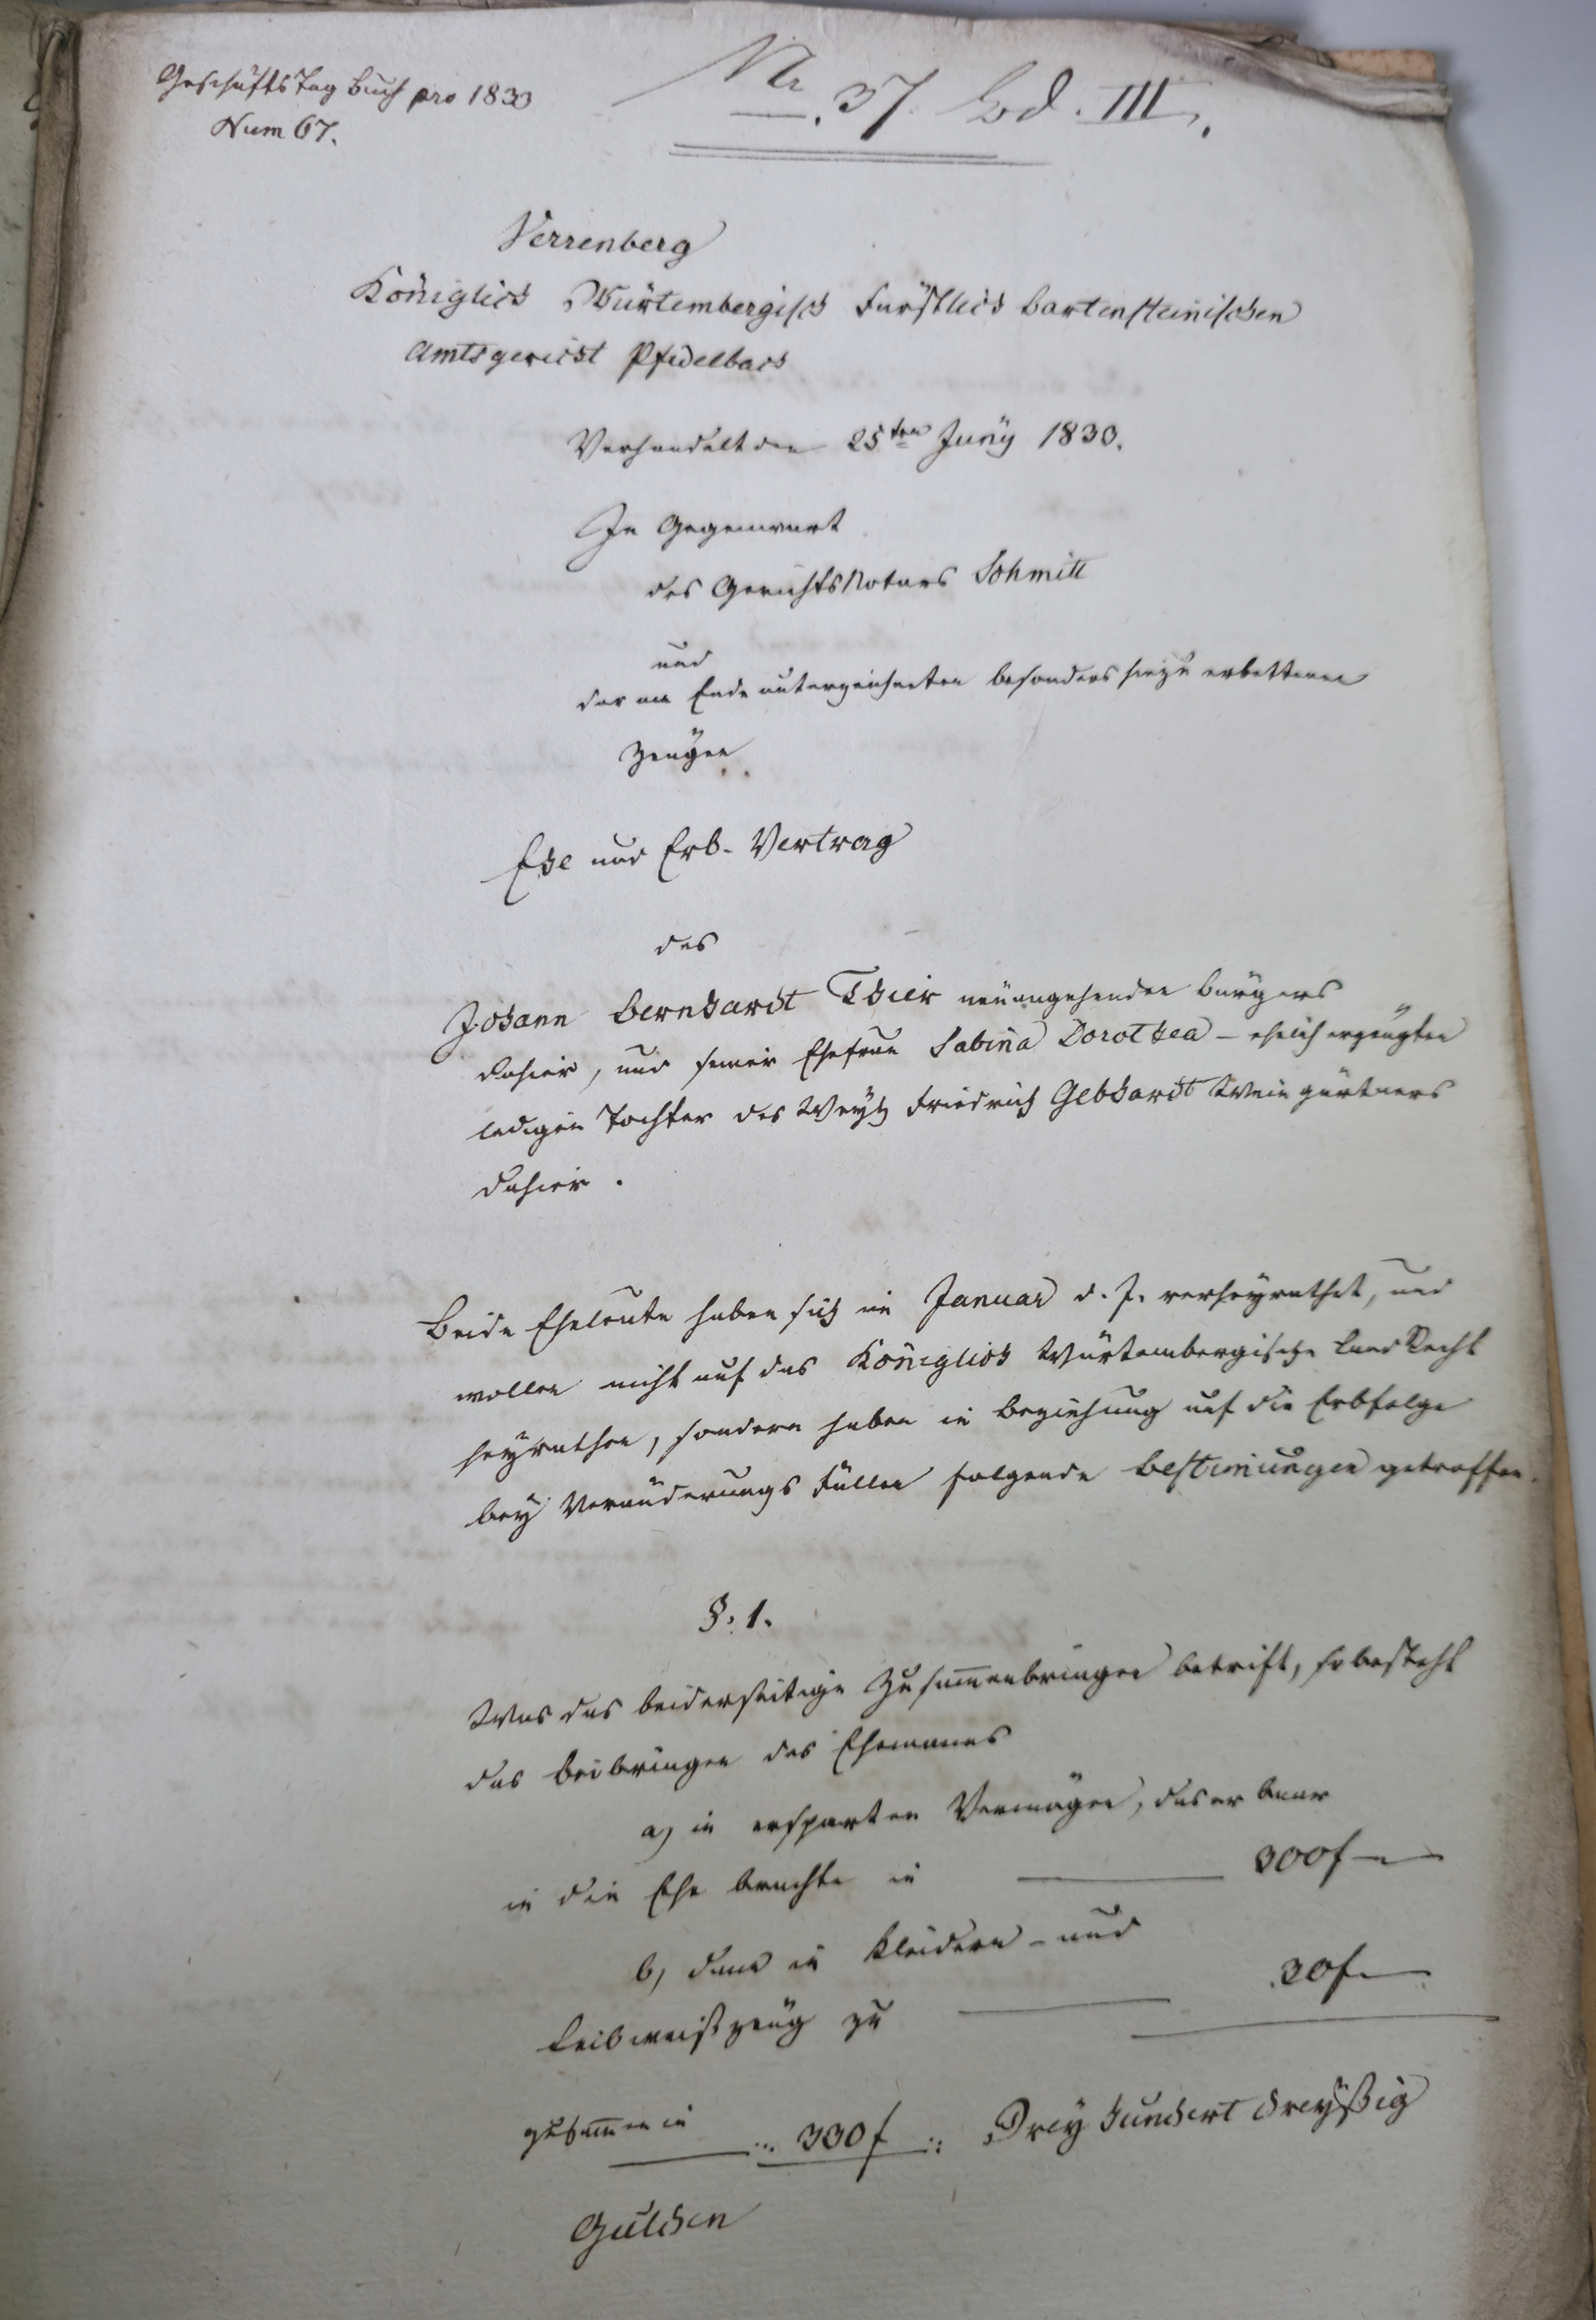 Geschäfts Tag Buch pro 1833
Num 67.
Nr. 37. Bd. III.
Verrenberg
Königlich Würtembergisch Fürstlich Bartensteinischen
Amtsgericht Pfedelbach
Verhandelt den 25ten Juny 1833.
In Gegenwart
des Gerichts Notars Schmitt
und
der am Ende unterzeichneten besonders hiezu erbettenen
Zeugen
Ehe und Erb-Vertrag
des
Johann Bernhardt Thier neuangehenden Bürgers
dahier, und seiner Ehefrau Sabina Dorothea – ehelich erzeugten
ledigen Tochter des Friedrich Gebhardt Weingärtners
dahier.
Beide Eheleute haben sich im Januar d. J. verheyrathet, und
wollen nicht auf das Königlich Würtembergische Land Recht
heyrathen, sondern haben in Beziehung auf die Erbfolge
bey Veränderungs Fällen folgende Bestimungen getroffen.
§. 1.
Was das beiderseitige Zusammenbringen betrift, so besteht
das Beibringen des Ehemanns
a) in ersparten Vermögen, das er baar
in die Ehe brachte in 300f
b) dann in Kleidern - und
Leibweißzeüg zu 30f
zusammen in 330f Drey hundert dreyßig
Gulden